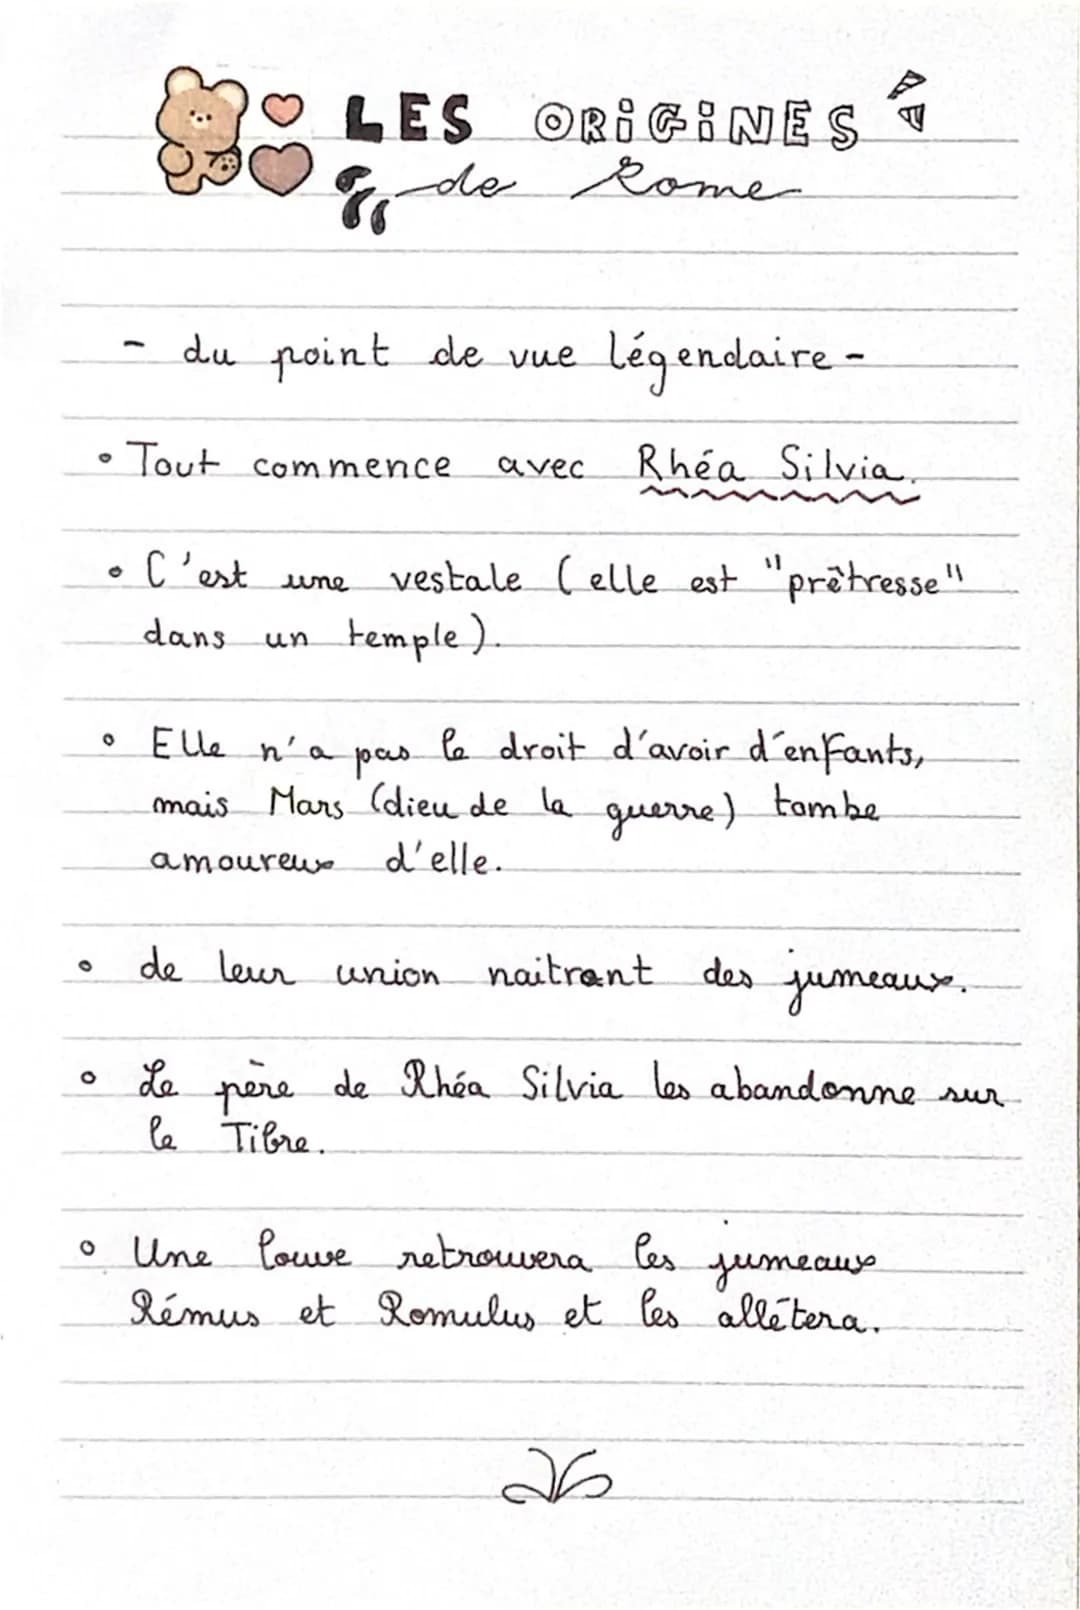 LES ORIGINES
de Rome
- du point de vue légendaire -
• Tout commence avec Rhéa Silvia.
• C'est une vestale (elle est "prêtresse"
dans un temple).
• Elle n'a pas le droit d'avoir d'enfants,
mais Mars (dieu de la guerre) tombe
amoureux d'elle.
• de leur union naitront des jumeaux.
• Le père de Rhéa Silvia les abandonne sur
le Tibre.
• Une louve retrouvera les jumeaux
Rémus et Romulus et les allétera.